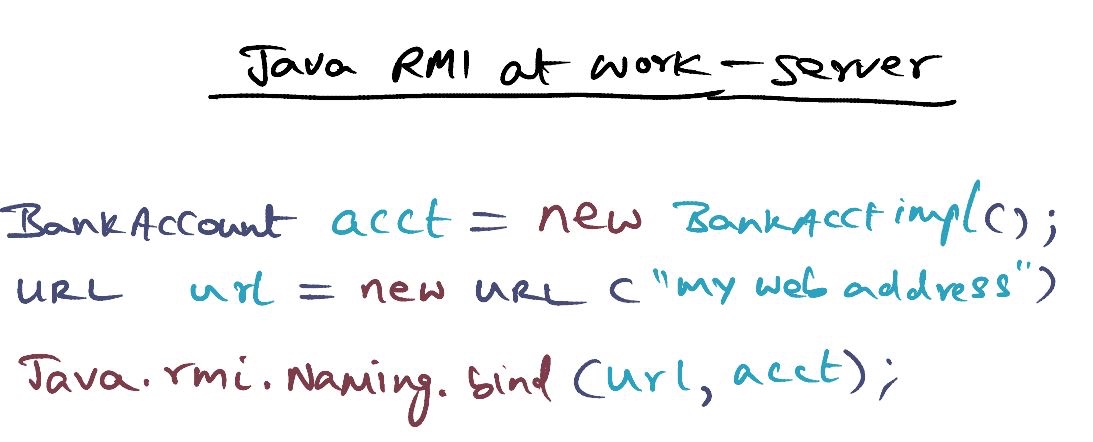 Java RMI at work - server
BankAccount acct = new BankAcct impl();
URL url = new URL ("my web address")
Java.rmi.Naming.bind (url, acct);